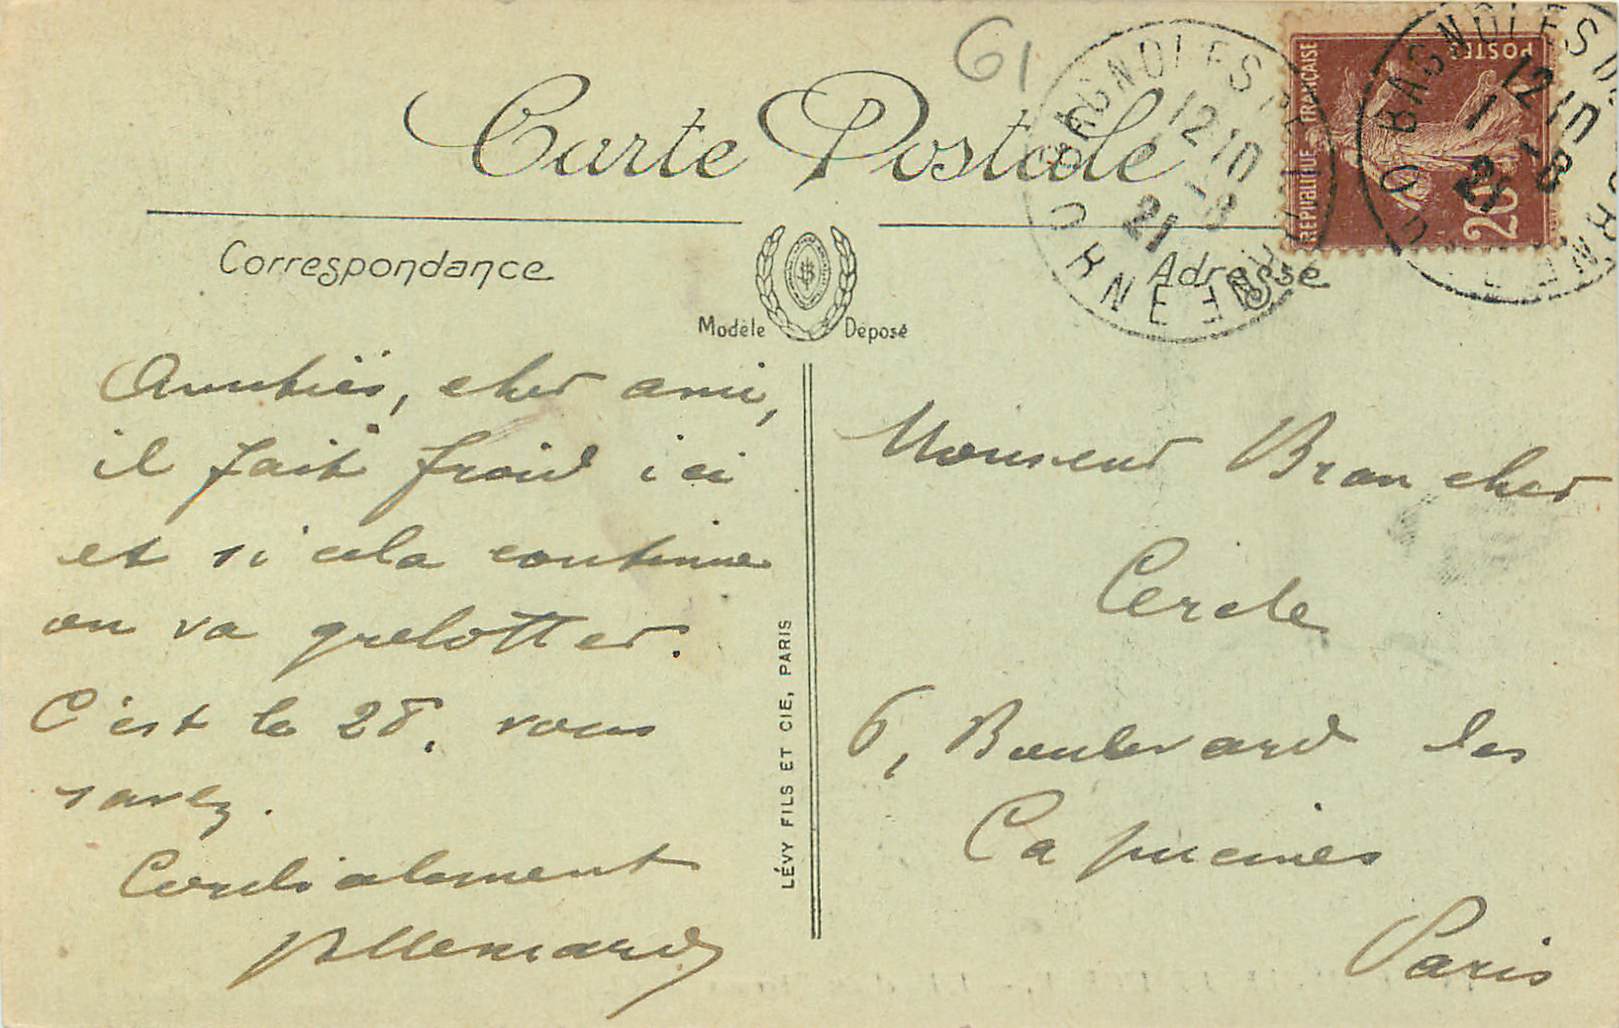 61
Carte Postale
Correspondance
Adresse
Modèle Déposé
RÉPUBLIQUE FRANÇAISE
POSTES
20
BAGNOLES DE L'ORNE
12 10
1 -8
21
ORNE
BAGNOLES DE L'ORNE
12 10
1 -8
21
ORNE
Amitiés, cher ami,
il fait froid ici
et si cela continue
on va grelotter.
C'est le 28. vous
savez.
Cordialement
LÉVY FILS ET CIE, PARIS
Monsieur Brancher
Cercle
6, Boulevard des
Capucines
Paris